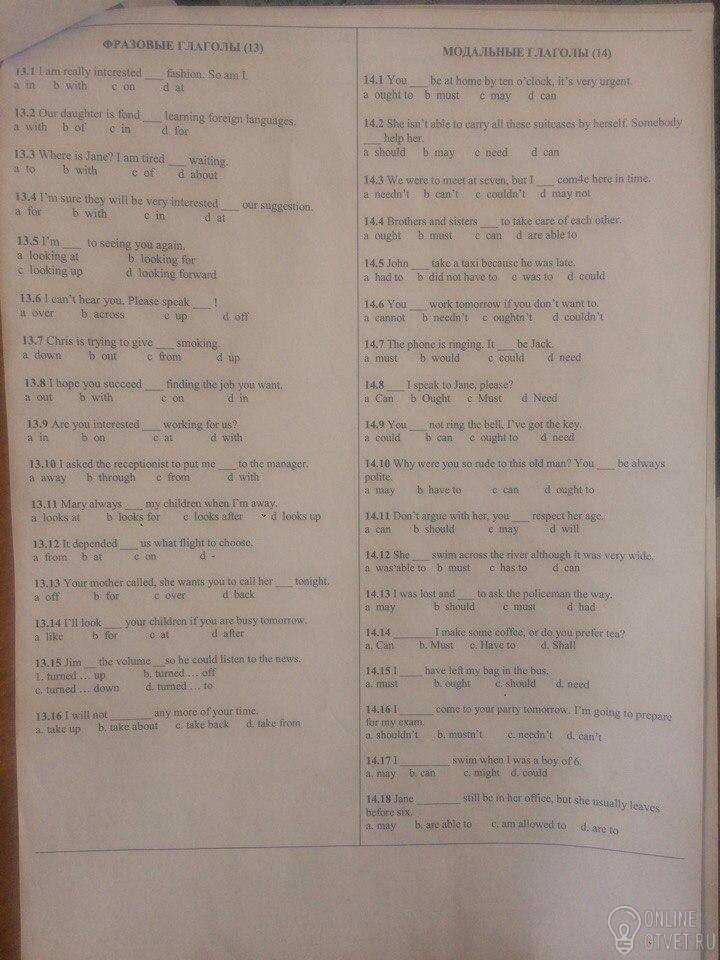 ФРАЗОВЫЕ ГЛАГОЛЫ (13)
13.1 I am really interested ___ fashion. So am I.
a in b with c on d at
13.2 Our daughter is fond ___ learning foreign languages.
a with b of c in d for
13.3 Where is Jane? I am tired ___ waiting.
a to b with c of d about
13.4 I'm sure they will be very interested ___ our suggestion.
a for b with c in d at
13.5 I'm ___ to seeing you again.
a looking at b looking for
c looking up d looking forward
13.6 I can't hear you. Please speak ___ !
a over b across c up d off
13.7 Chris is trying to give ___ smoking.
a down b out c from d up
13.8 I hope you succeed ___ finding the job you want.
a out b with c on d in
13.9 Are you interested ___ working for us?
a in b on c at d with
13.10 I asked the receptionist to put me ___ to the manager.
a away b through c from d with
13.11 Mary always ___ my children when I'm away.
a looks at b looks for c looks after d looks up
13.12 It depended ___ us what flight to choose.
a from b at c on d -
13.13 Your mother called, she wants you to call her ___ tonight.
a off b for c over d back
13.14 I'll look ___ your children if you are busy tomorrow.
a like b for c at d after
13.15 Jim __ the volume __ so he could listen to the news.
1. turned … up b. turned … off
c. turned … down d. turned … to
13.16 I will not ______ any more of your time.
a. take up b. take about c. take back d. take from
МОДАЛЬНЫЕ ГЛАГОЛЫ (14)
14.1 You ___ be at home by ten o'clock, it's very urgent.
a ought to b must c may d can
14.2 She isn't able to carry all these suitcases by herself. Somebody
___ help her.
a should b may c need d can
14.3 We were to meet at seven, but I ___ com4e here in time.
a needn't b can't c couldn't d may not
14.4 Brothers and sisters ___ to take care of each other.
a ought b must c can d are able to
14.5 John ___ take a taxi because he was late.
a had to b did not have to c was to d could
14.6 You ___ work tomorrow if you don't want to.
a cannot b needn't c oughtn't d couldn't
14.7 The phone is ringing. It ___ be Jack.
a must b would c could d need
14.8 ___ I speak to Jane, please?
a Can b Ought c Must d Need
14.9 You ___ not ring the bell, I've got the key.
a could b can c ought to d need
14.10 Why were you so rude to this old man? You ___ be always
polite.
a may b have to c can d ought to
14.11 Don't argue with her, you ___ respect her age.
a can b should c may d will
14.12 She ___ swim across the river although it was very wide.
a was able to b must c has to d can
14.13 I was lost and ___ to ask the policeman the way.
a may b should c must d had
14.14 ______ I make some coffee, or do you prefer tea?
a. Can b. Must c. Have to d. Shall
14.15 I ____ have left my bag in the bus.
a. must b. ought c. should d. need
14.16 I ______ come to your party tomorrow. I'm going to prepare
for my exam.
a. shouldn't b. mustn't c. needn't d. can't
14.17 I ______ swim when I was a boy of 6.
a. may b. can c. might d. could
14.18 Jane ______ still be in her office, but she usually leaves
before six.
a. may b. are able to c. am allowed to d. are to
ONLINE
OTVET.RU